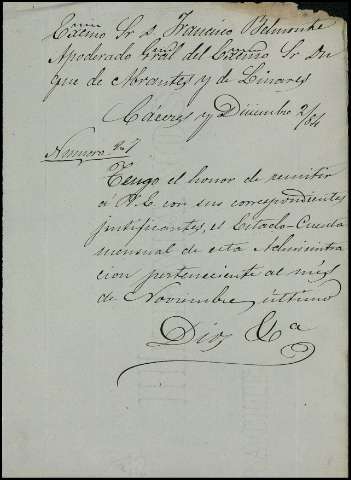 Exmo Sr D. Francisco Belmonte
Apoderado Gral del Exmo Sr Du
que de Abrantes y de Linares
Cáceres y Diciembre 2/84
Numero
Tengo el honor de remitir
á V.E. con sus correspondientes
justificantes, el Estado-Cuenta
mensual de esta Administra
cion perteneciente al mes
de Noviembre último
Dios &a